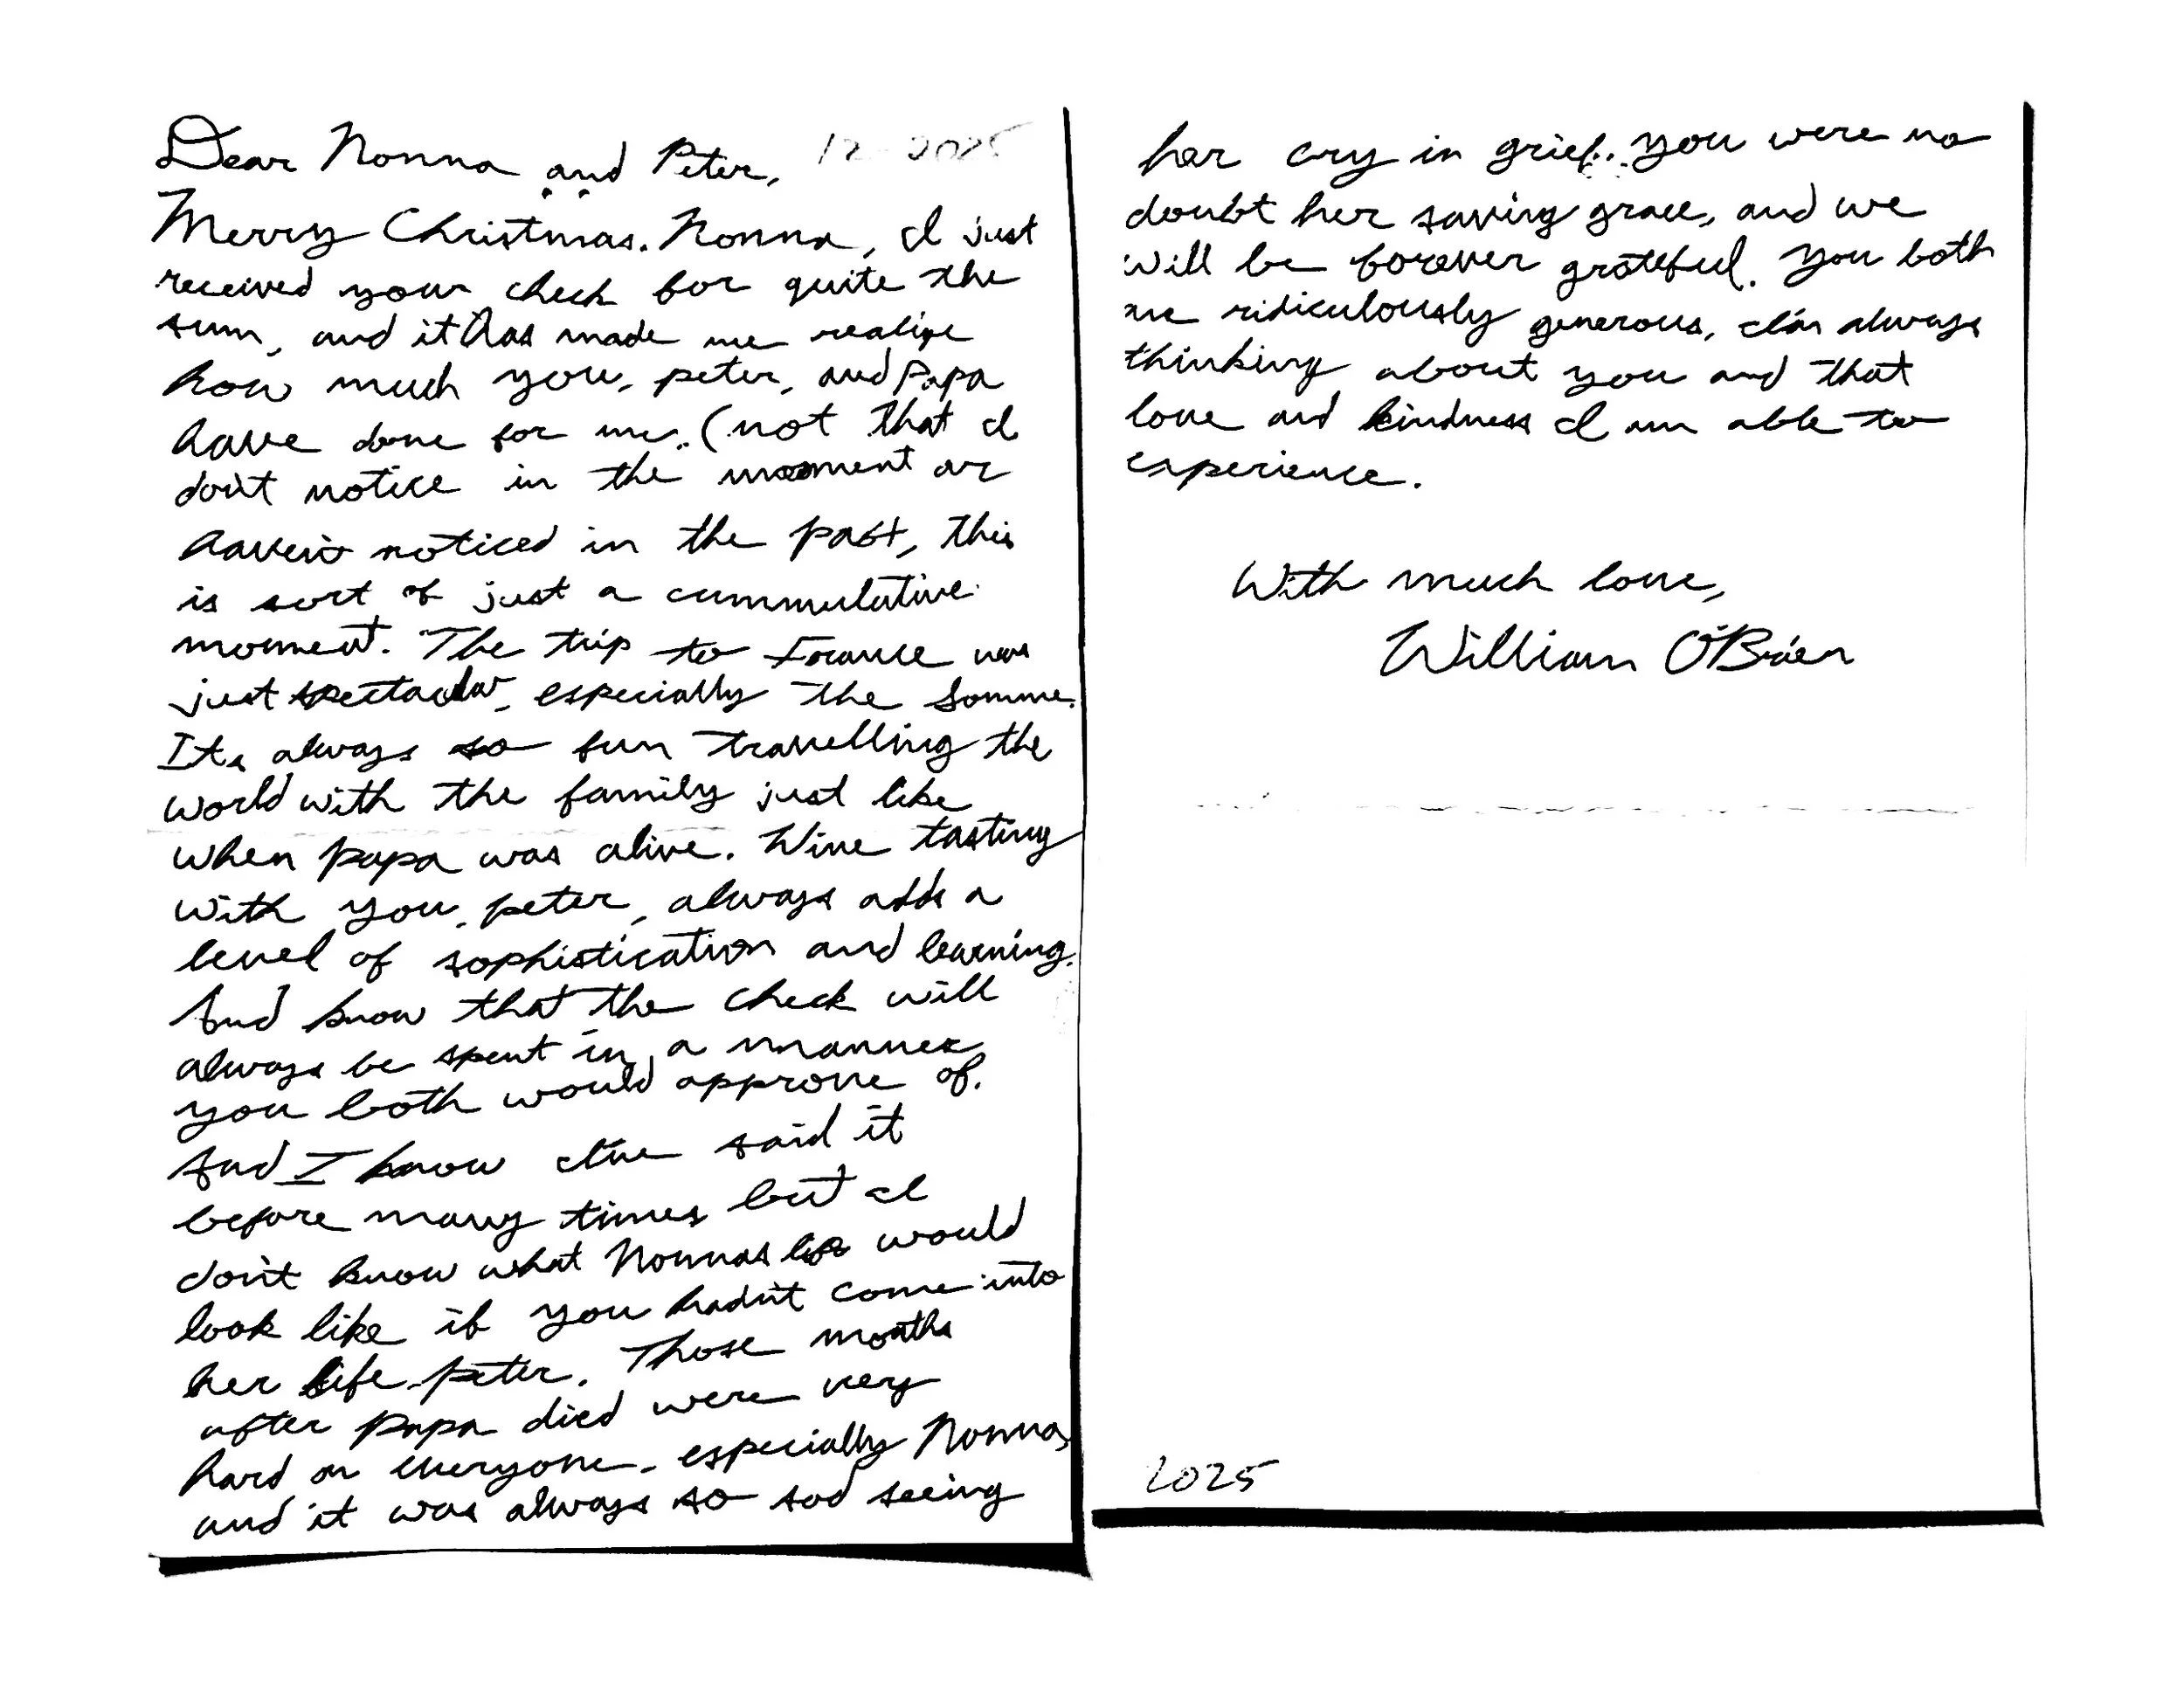 Dear Nonna and Peter, 12 2025
Merry Christmas. Nonna, I just
received your check for quite the
sum, and it has made me realize
how much you, peter, and Papa
have done for me. (not that I
don't notice in the moment or
haven't noticed in the past, this
is sort of just a cummulative
moment. The trip to France was
just spectacular, especially the Somme.
Its always so fun travelling the
world with the family just like
when papa was alive. Wine tasting
with you, peter, always adds a
level of sophistication and learning.
And know that the check will
always be spent in a manner
you both would approve of.
And I know I've said it
before many times but I
don't know what Nonnas life would
look like if you hadn't come into
her life peter. Those months
after papa died were very
hard on everyone, especially Nonna,
and it was always so sad seeing
her cry in grief. You were no
doubt her saving grace, and we
will be forever grateful. You both
are ridiculously generous, I'm always
thinking about you and that
love and kindness I am able to
experience.
With much love,
William O'Brien
2025